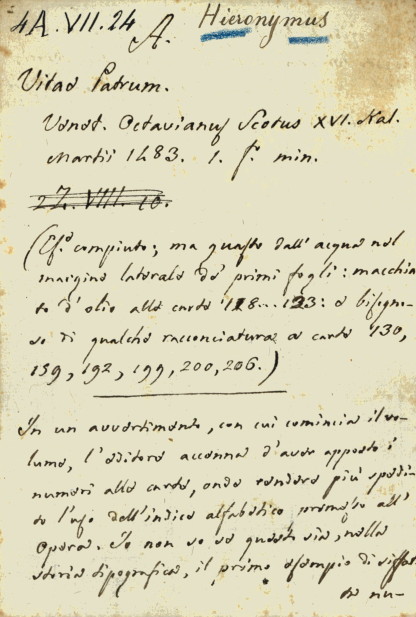 4A.VII.24
A. Hieronymus
Vitae Patrum.
Venet. Octavianus Scotus XVI. Kal.
Martii 1483. 1. f. min.
27. VIII. 10.
(Es.º compiuto; ma guasto dall'acqua nel
margine laterale de' primi fogli: macchia-
to d'olio alle carte 118-123: e bisogno-
so di qualche racconciatura a carte 130,
159, 192, 199, 200, 206.)
In un avvertimento, con cui comincia il vo-
lume, l'editore accenna d'aver apposto i
numeri alle carte, onde rendere più spedi-
to l'uso dell'indice alfabetico premesso all'
Opera. Io non so se questo sia, nella
storia tipografica, il primo esempio di siffat-
ta nu-